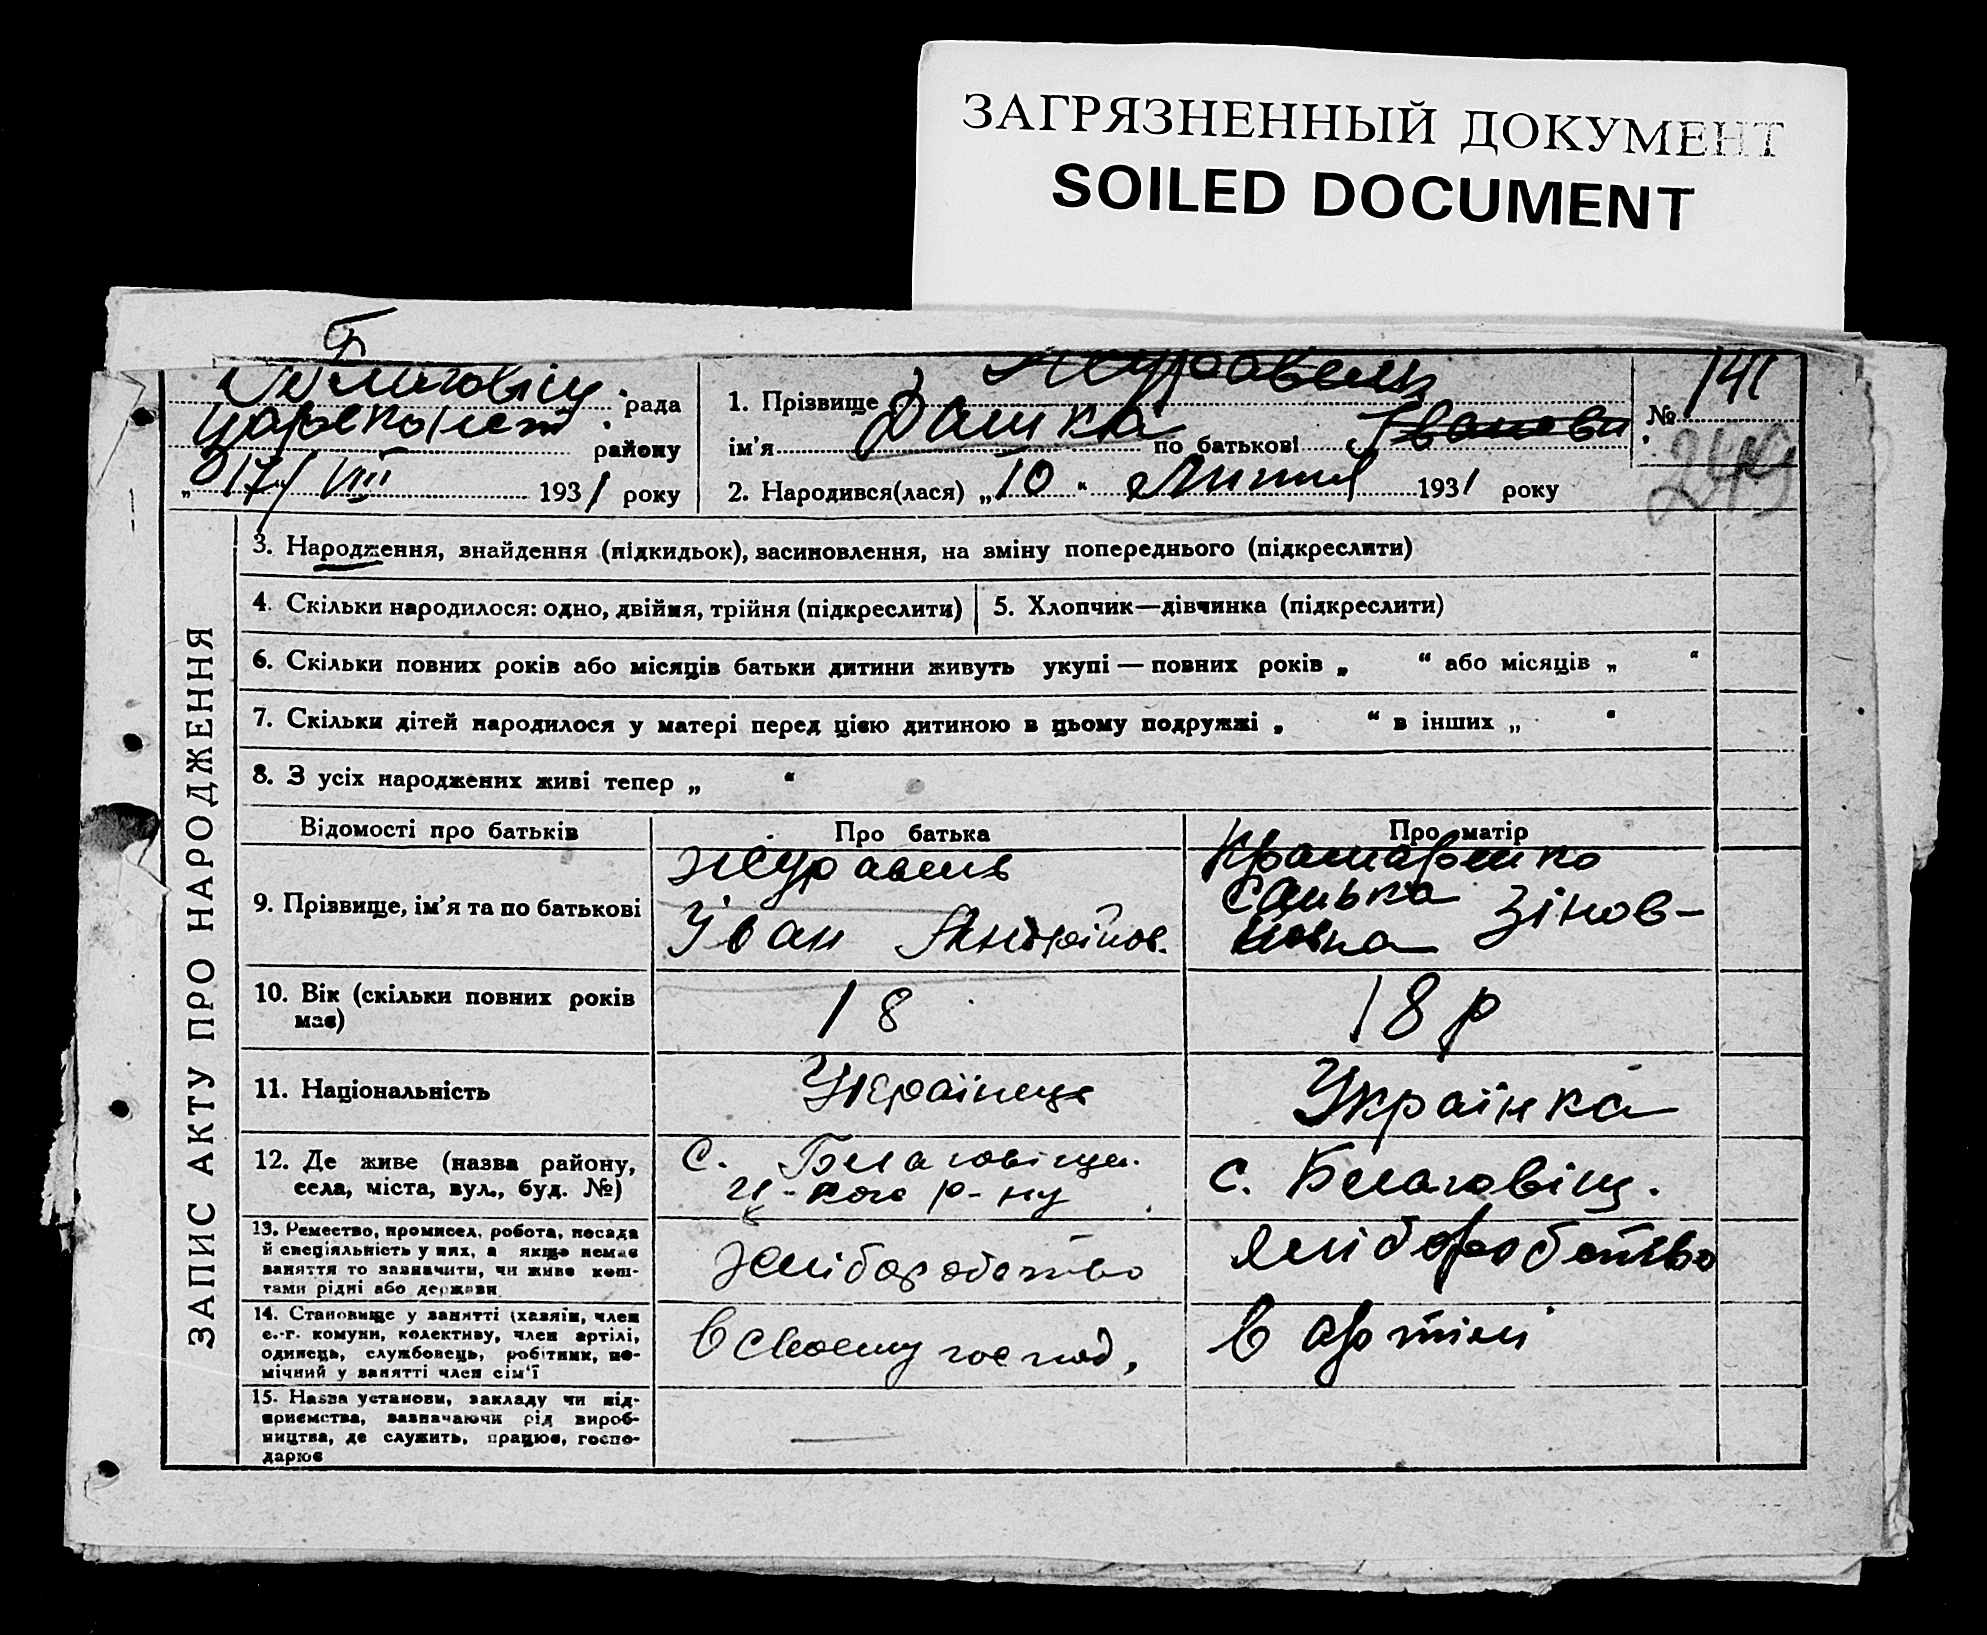 ЗАГРЯЗНЕННЫЙ ДОКУМЕНТ
SOILED DOCUMENT
рада
району
"17/VIII 1931 року
1. Прізвище Журавель
ім'я Дашка по батькові Іванови
2. Народився(лася) „10" Липня 1931 року
№ 141
249
ЗАПИС АКТУ ПРО НАРОДЖЕННЯ
3. Народження, знайдення (підкидьок), засиновлення, на зміну попереднього (підкреслити)
4. Скільки народилося: одно, двійня, трійня (підкреслити)
5. Хлопчик—дівчинка (підкреслити)
6. Скільки повних років або місяців батьки дитини живуть укупі — повних років „ “ або місяців „ “
7. Скільки дітей народилося у матері перед цією дитиною в цьому подружжі „ “ в інших „ “
8. З усіх народжених живі тепер „ “
Відомості про батьків
Про батька
Про матір
9. Прізвище, ім'я та по батькові
Журавель
Іван Андрійов.
Крамаренко
Санька Зінов-
ївна
10. Вік (скільки повних років
має)
18
18 р
11. Національність
Українець
Українка
12. Де живе (назва району,
села, міста, вул., буд. №)
с.
Ц-кого р-ну
с.
13. Ремество, промисел, робота, посада
й спеціяльність у них, а якщо немає
заняття то зазначити, чи живе кош-
тами рідні або держави
хліборобство
хліборобство
14. Становище у занятті (хазяїн, член
с.-г. комуни, колективу, член артілі,
одинець, службовець, робітник, по-
мічний у занятті член сім'ї
в своєму господ.
в артілі
15. Назва установи, закладу чи під-
приємства, зазначаючи рід вироб-
ництва, де служить, працює, госпо-
дарює